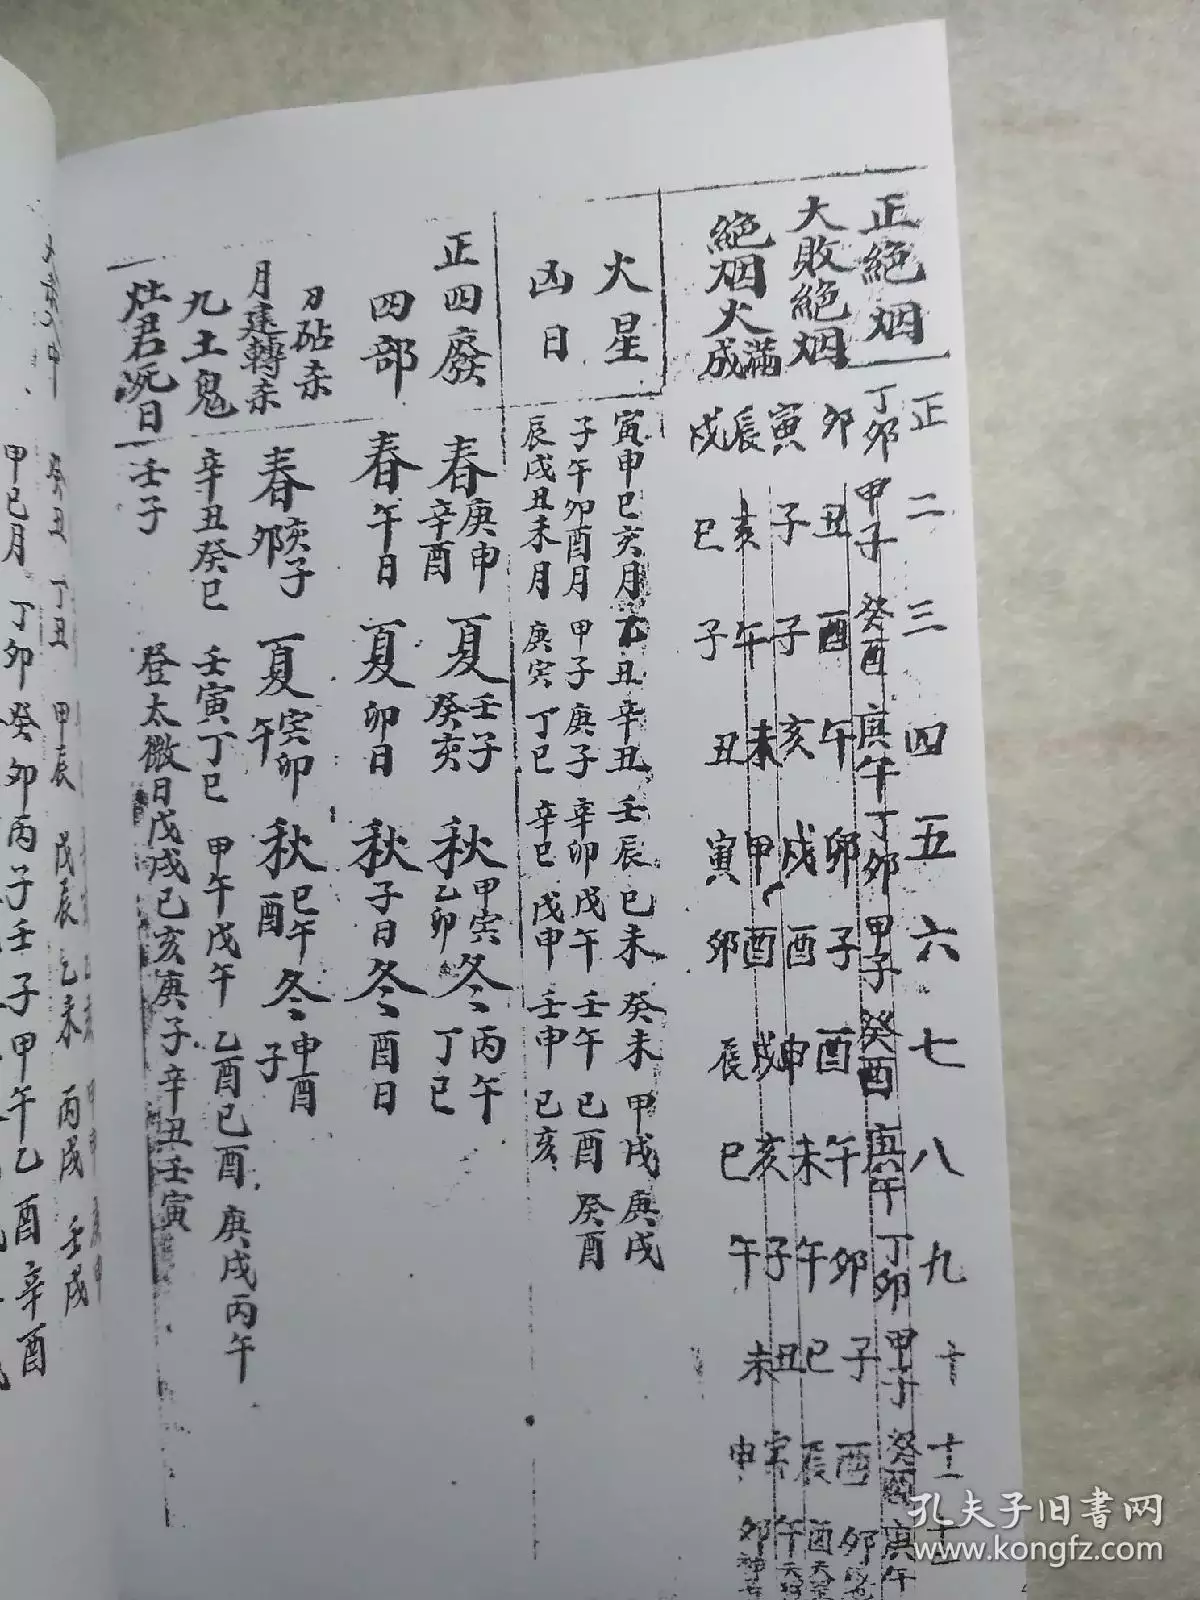 正二三四五六七八九十十一十二
正絕烟
丁卯 甲子 癸酉 庚午 丁卯 甲子 癸酉 庚午 丁卯 甲子 癸酉 庚午
大敗絕烟
卯 丑 酉 午 卯 子 酉 午 卯 子 酉 卯
寅 子 子 亥 戌 酉 申 未 午 巳 辰 酉
絕烟火滿成
辰 亥 午 未 申 酉 戌 亥 子 丑 寅 午
戌 巳 子 丑 寅 卯 辰 巳 午 未 申 卯
火星
凶日
寅申巳亥月 乙丑 辛丑 壬辰 己未 癸未 甲戌 庚戌
子午卯酉月 甲子 庚子 辛卯 戊午 壬午 己酉 癸酉
辰戌丑未月 庚寅 丁巳 辛巳 戊申 壬申 己亥
正四廢
春 庚申 辛酉 夏 壬子 癸亥 秋 甲寅 乙卯 冬 丙午 丁巳
四部
春午日 夏卯日 秋子日 冬酉日
刀砧杀
月建轉杀
春 亥子 卯 夏 寅卯 午 秋 巳午 酉 冬 申酉 子
九土鬼
辛丑 癸巳 壬寅 丁巳 甲午 戊午 乙酉 己酉 庚戌 丙午
灶君死日
壬子 登太微日 戊戌 己亥 庚子 辛丑 壬寅
癸丑 丁丑 甲辰 戊辰 乙未 丙戌 壬戌
甲己月 丁卯 癸卯 丙子 壬子 甲午 乙酉 辛酉
孔夫子旧书网
www.kongfz.com